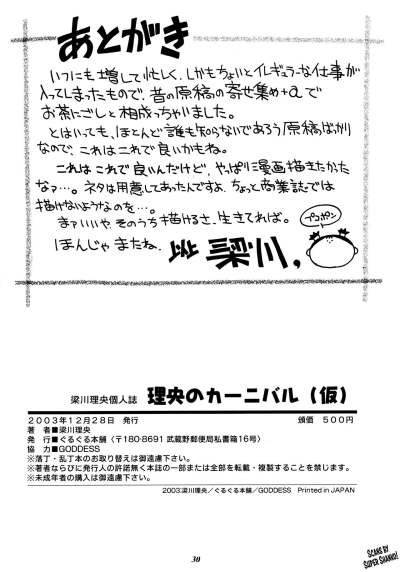 あとがき
いつにも増して忙しく、しかもちょいとイレギュラーな仕事が
入ってしまったもので、昔の原稿の寄せ集め+αで
お茶にごしと相成っちゃいました。
とはいっても、ほとんど誰も知らないであろう原稿ばかり
なので、これはこれで良いかもね。
これはこれで良いんだけど、やっぱり漫画描きたかった
なァ…。ネタは用意してあったんですよ、ちょっと商業誌では
描けないようなのを…。
まァいいや、そのうち描けるさ、生きてれば。
ほんじゃまたね、
梁川,
ペコポン
梁川理央個人誌 理央のカーニバル(仮)
2003年12月28日 発行 頒価 500円
著 者■梁川理央
発 行■ぐるぐる本舗〈〒180-8691 武蔵野郵便局私書箱16号〉
協 力■GODDESS
※落丁・乱丁本のお取り替えは御遠慮下さい。
※著者ならびに発行人の許諾無く本誌の一部または全部を転載・複製することを禁じます。
※未成年者の購入は御遠慮下さい。
2003 梁川理央/ぐるぐる本舗/GODDESS Printed in JAPAN
30
SCANS BY
SUPER SHANKO!